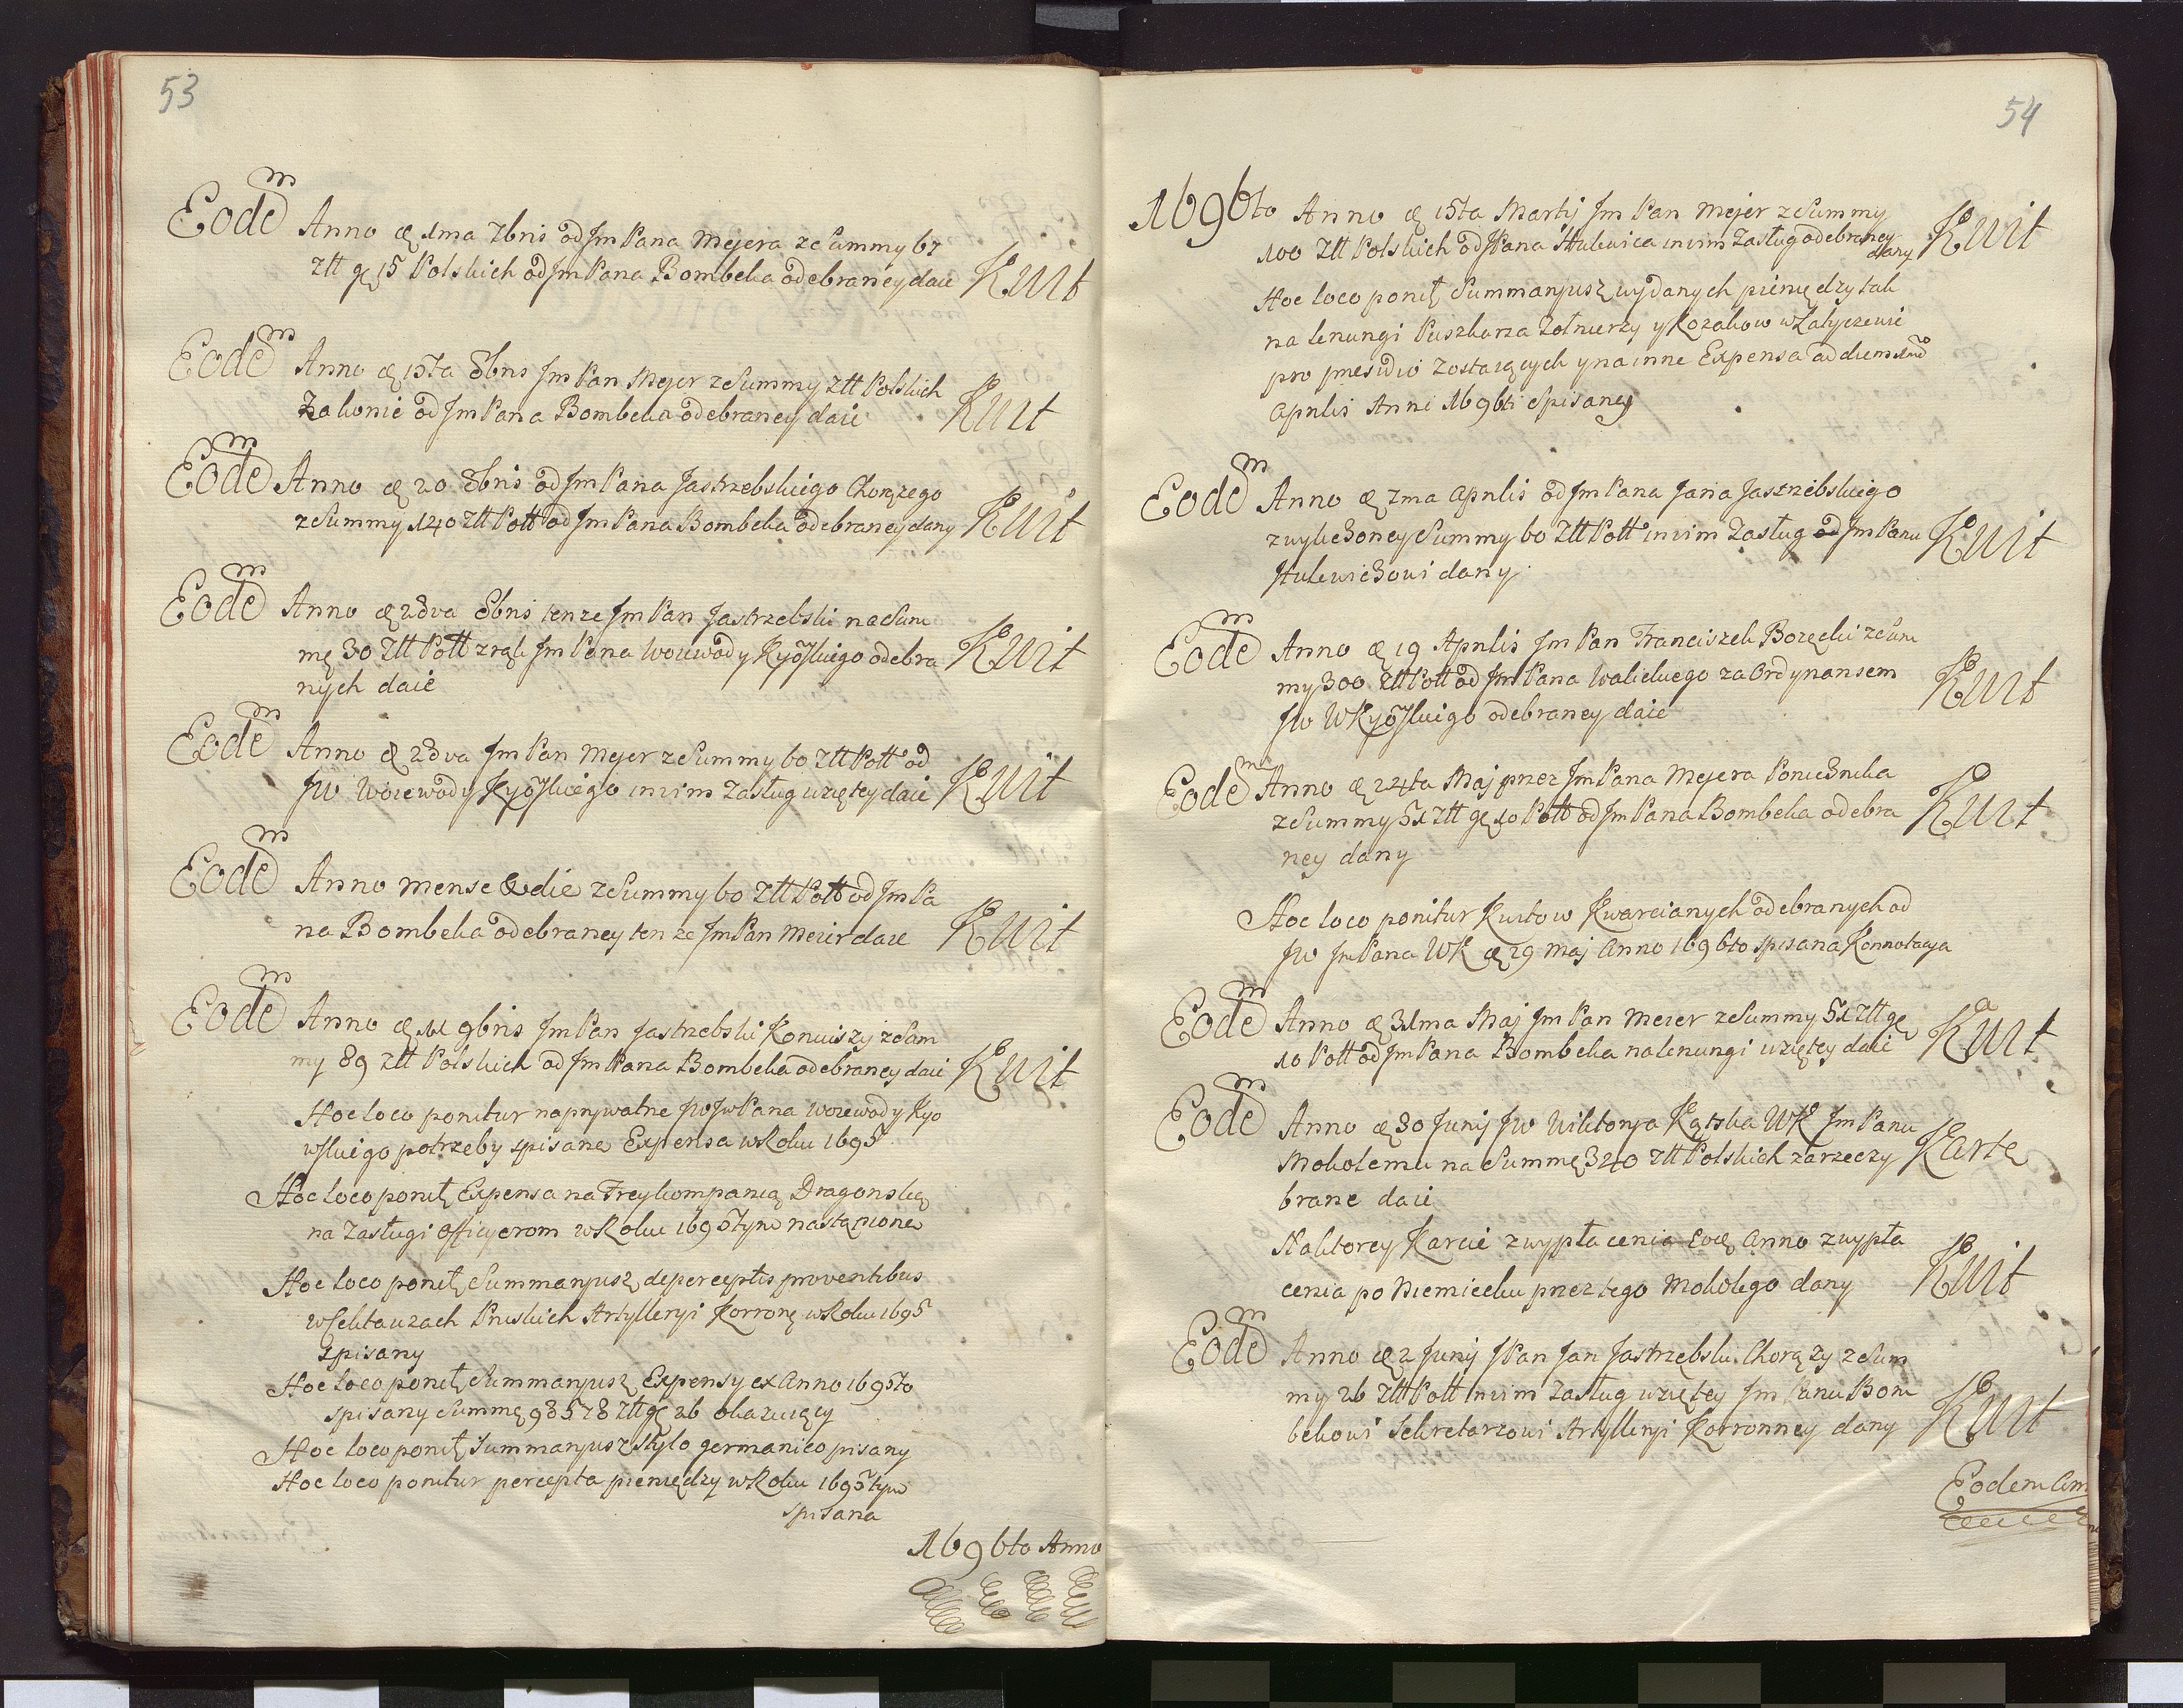 53
Eodem Anno d 1ma 7bris od Jm Pana Mejera ze Summy 67
Złł gr 15 Polskich od Jm Pana Bombeka odebraney daie Kwit
Eodem Anno d 15ta 8bris Jm Pan Mejer z Summy Złł Polskich
Za konie od Jm Pana Bombeka odebraney daie Kwit
Eodem Anno d 20 8bris od Jm Pana Jastrzebskiego Chorązego
z Summy 140 Złł Poll od Jm Pana Bombeka odebraney dany Kwit
Eodem Anno d 28va 8bris tenze Jm Pan Jastrzebski na Sum
mę 30 Złł Poll z rąk Jm Pana Woiewody Kyoskiego odebra
nych daie Kwit
Eodem Anno d 28va Jm Pan Mejer z Summy 60 Złł Poll od
Jw Woiewody Kyoskiego in vim Zasług wziętey daie Kwit
Eodem Anno mense & die z Summy 60 Złł Poll od Jm Pa
na Bombeka odebraney ten ze Jm Pan Meier daie Kwit
Eodem Anno d 11 9bris Jm Pan Jastrzebski Koniuszy z Sum
my 89 Złł Polskich od Jm Pana Bombeka odebraney daie Kwit
Hoc loco ponitur na prywatne Jw Jm Pana Woiewody Kyo
wskiego potrzeby spisane Expensa w Roku 1695
Hoc loco ponit Expensa na Freykompanią Dragonską
na Zasługi Officyerom w Roku 1695tym nastąpione
Hoc loco ponit Summaryusz de perceptis proventibus
w Sektauzach Pruskich Artylleryi Korronę w Roku 1695
spisany
Hoc loco ponit Summaryusz Expensy ex Anno 1695to
spisany Summę 98578 Złł gr 26 okazuiący
Hoc loco ponit Summaryusz stylo germanico pisany
Hoc loco ponitur percepta pieniędzy w Roku 1695tym
spisana
1696to Anno
54
1696to Anno d 15ta Martij Jm Pan Mejer z Summy
100 Złł Polskich od JPana Hulewica in vim Zasług odebraney
dany Kwit
Hoc loco ponit Summaryusz wydanych pieniędzy tak
na lenungi Puszkarza Zołnierzy y Kozakow w Latyczewie
pro presidio Zostaiących y na inne Expensa ad diem
Aprilis Anni 1696ti Spisaney
Eodem Anno d 7ma Aprilis od Jm Pana Jana Jastrzebskiego
z wyliczoney Summy 60 Złł Poll in vim Zasług od Jm Panu
Hulewiczowi dany Kwit
Eodem Anno d 19 Aprilis Jm Pan Franciszek Borzęcki z Sum
my 300 Złł Poll od Jm Pana Walickiego za Ordynansem
Jw WKyoskiego odebraney daie Kwit
Eodem Anno d 24ta Maj przez Jm Pana Mejera Porucznika
z Summy 51 Złł gr 10 Poll od Jm Pana Bombeka odebra
ney dany Kwit
Hoc loco ponitur Kwitow Kwarcianych odebranych od
Jw Jm Pana WK d 29 Maj Anno 1696to spisana Konnotacya
Eodem Anno d 31ma Maj Jm Pan Meier z Summy 51 Złł gr
10 Poll od Jm Pana Bombeka na lenungi wziętey daie Kwit
Eodem Anno d 30 Junij Jw Wiktorya Kątska WK Jm Panu
Mokolemu na Summę 340 Złł Polskich za rzeczy
brane daie Kartę
Na ktorey Karcie z wypłacenia Eodę Anno z wypła
cenia po Niemiecku przez tego Mokolego dany Kwit
Eodem Anno d 2 Junij JPan Jan Jastrzębski Chorązy z Sum
my 26 Złł Poll in vim Zasług wziętey Jm Panu Bom
bekowi Sekretarzowi Artylleryi Korronney dany Kwit
Eodem Ann